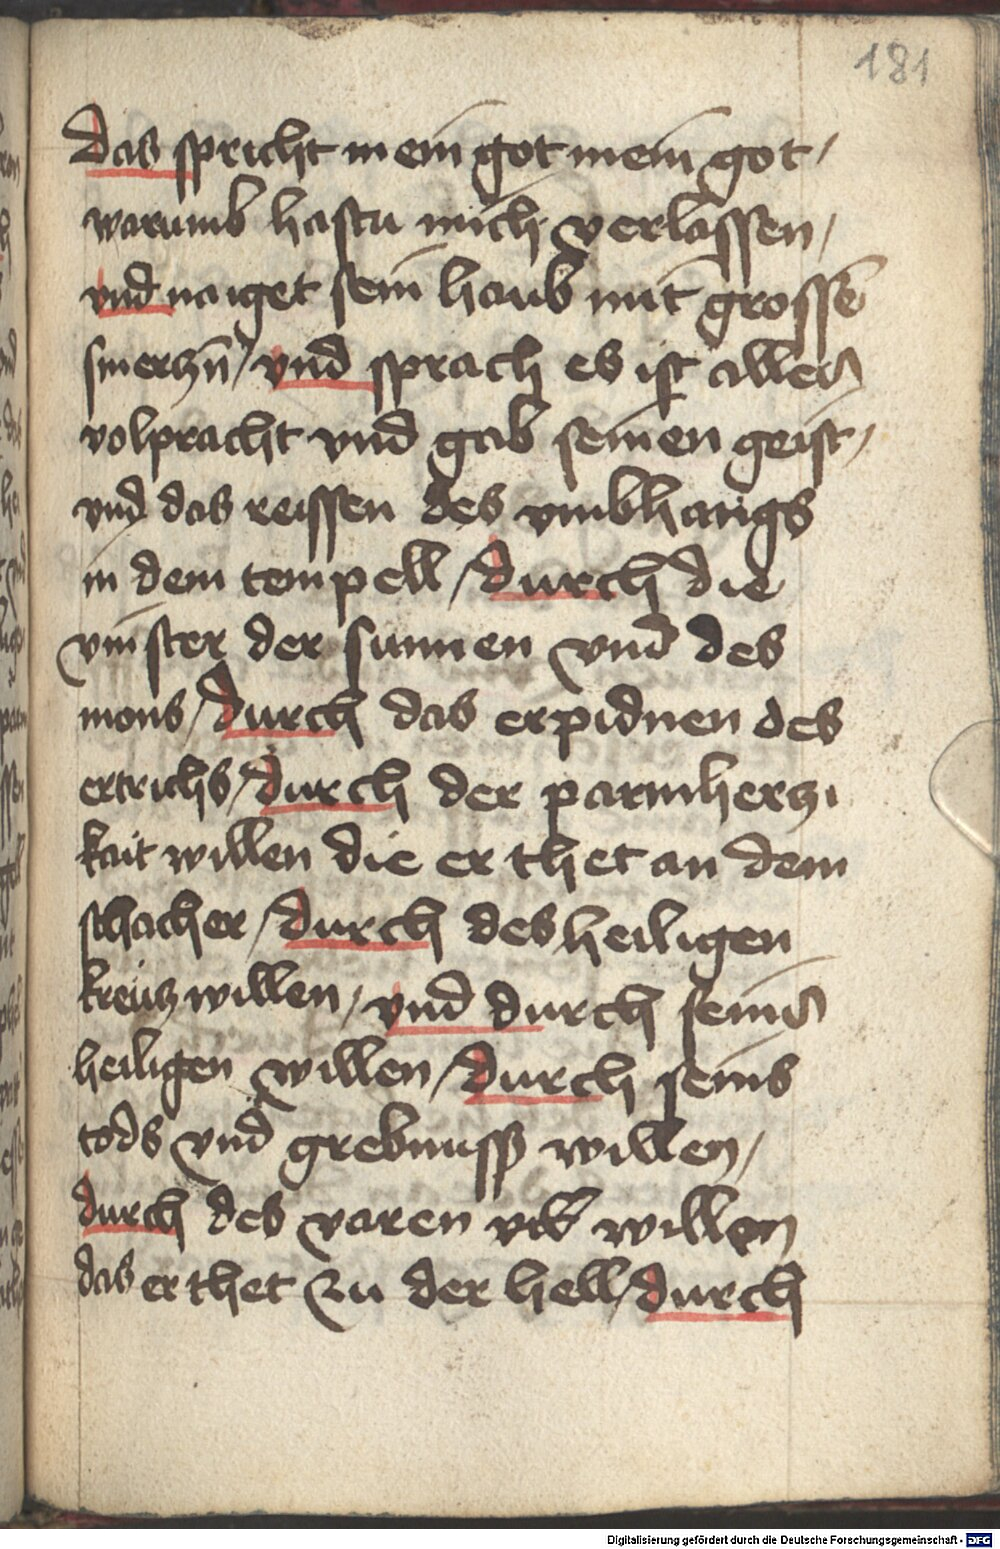 181
Das spricht mein got mein got /
warumb hastu mich verlassen /
vnd naiget sein haub mit grossē
smerczn̄ / vnd sprach es ist alles
volpracht vnd gab seinen geist /
vnd das reissen des vmbhangs
in dem tempell / durch die
vinster der sunnen vnd des
mons / durch das erpidnen des
ertrichs / durch der parmherczi
kait willen die er thet an dem
schacher / durch des heiligen
kreücz willen / vnd durch seiner
heiligen willen / durch seins
tods vnd grebnuss willen /
durch des varen willen
das er thet zu der hell / durch
Digitalisierung gefördert durch die Deutsche Forschungsgemeinschaft - DFG